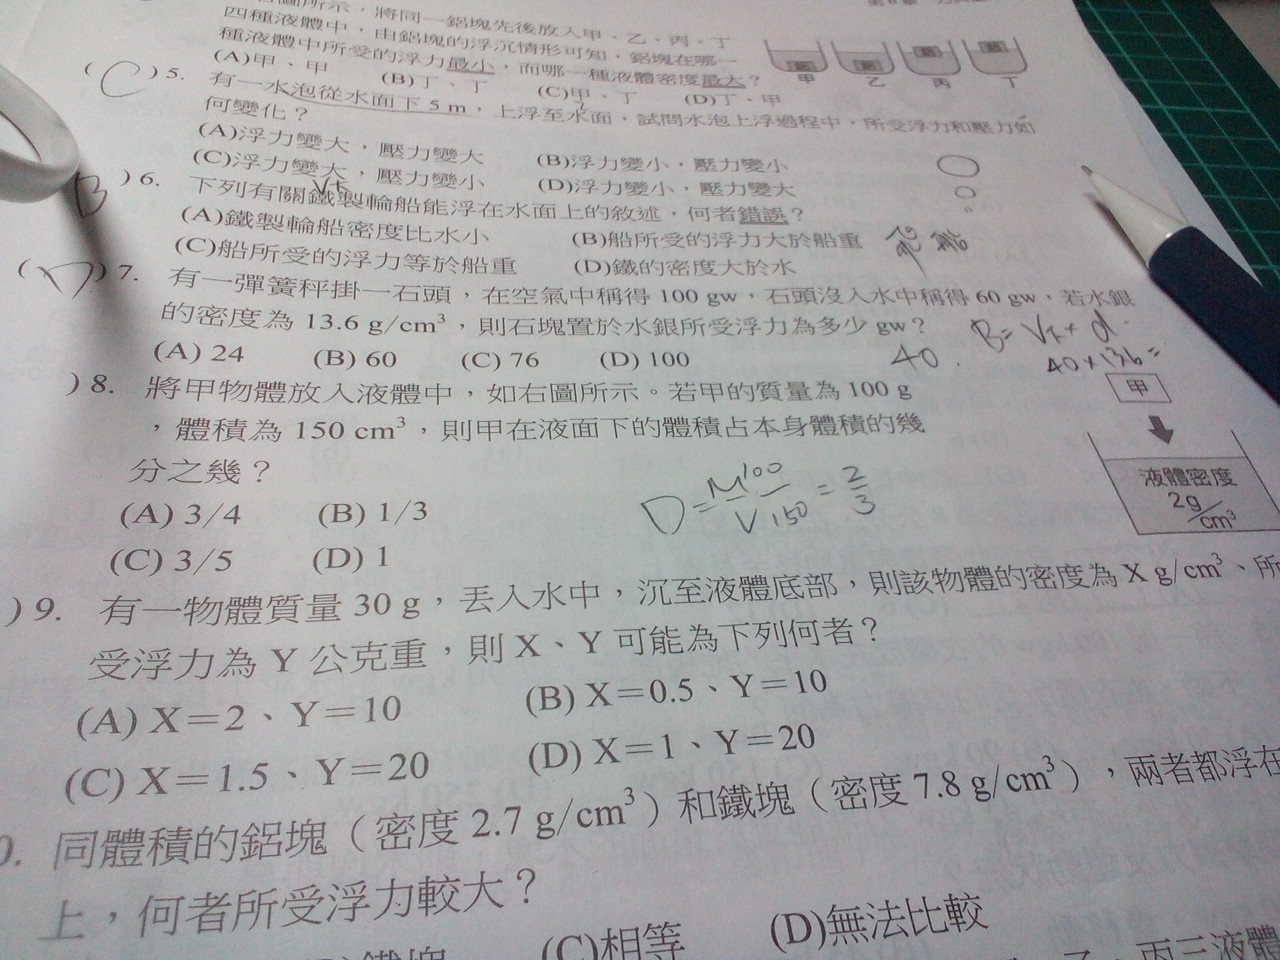 圖所示，將同一鋁塊先後放入甲、乙、丙、丁
四種液體中，由鋁塊的浮沉情形可知，鋁塊在哪一
種液體中所受的浮力最小，而哪一種液體密度最大？
(A)甲、甲 (B)丁、丁 (C)甲、丁 (D)丁、甲
甲 乙 丙 丁
(C)5. 有一水泡從水面下 5 m，上浮至水面，試問水泡上浮過程中，所受浮力和壓力如
何變化？
(A)浮力變大，壓力變大 (B)浮力變小，壓力變小
(C)浮力變大，壓力變小 (D)浮力變小，壓力變大
(B)6. 下列有關鐵製輪船能浮在水面上的敘述，何者錯誤？
(A)鐵製輪船密度比水小 (B)船所受的浮力大於船重
(C)船所受的浮力等於船重 (D)鐵的密度大於水
( )7. 有一彈簧秤掛一石頭，在空氣中稱得 100 gw，石頭沒入水中稱得 60 gw，若水銀
的密度為 13.6 g/cm³，則石塊置於水銀所受浮力為多少 gw？
(A) 24 (B) 60 (C) 76 (D) 100
40
B=V下×d
40×13.6=
)8. 將甲物體放入液體中，如右圖所示。若甲的質量為 100 g
，體積為 150 cm³，則甲在液面下的體積占本身體積的幾
分之幾？
(A) 3/4 (B) 1/3
(C) 3/5 (D) 1
D=M/V 100/150=2/3
甲
液體密度
2g/cm³
)9. 有一物體質量 30 g，丟入水中，沉至液體底部，則該物體的密度為 X g/cm³、所
受浮力為 Y 公克重，則 X、Y 可能為下列何者？
(A) X＝2、Y＝10 (B) X＝0.5、Y＝10
(C) X＝1.5、Y＝20 (D) X＝1、Y＝20
0. 同體積的鋁塊（密度 2.7 g/cm³）和鐵塊（密度 7.8 g/cm³），兩者都浮在
上，何者所受浮力較大？
鐵塊 (C)相等 (D)無法比較
丙三液體